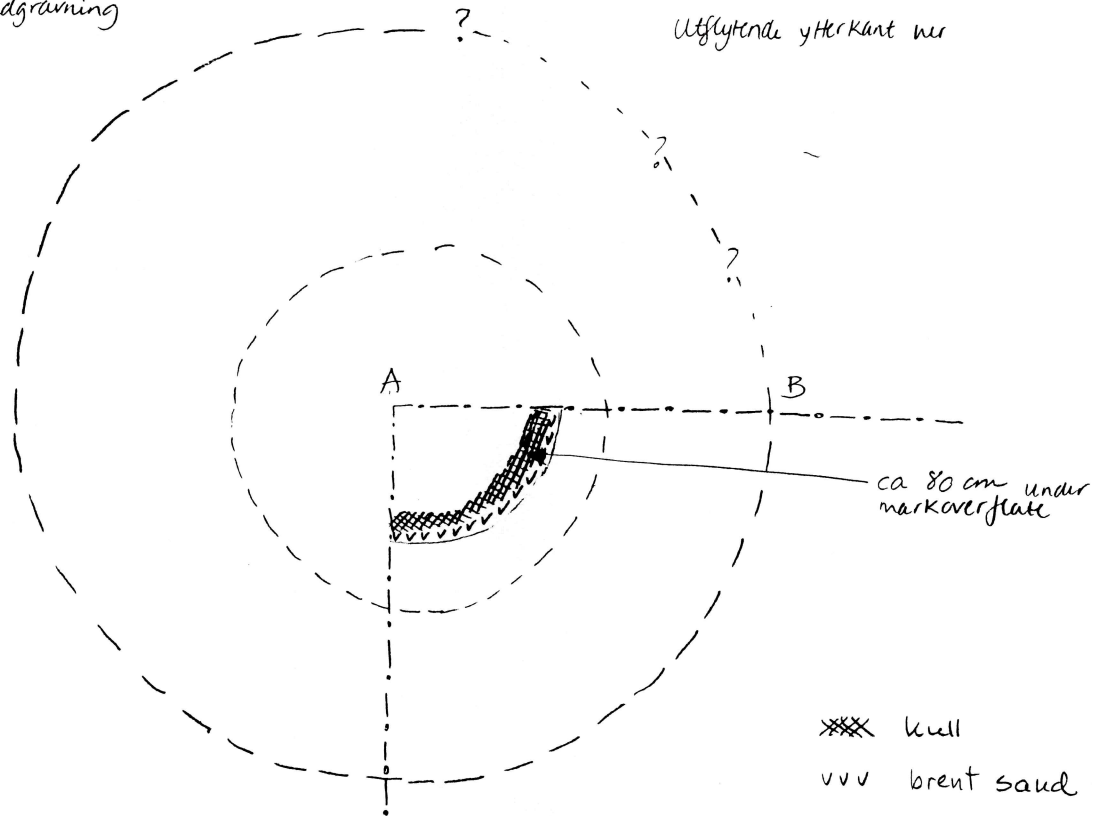 dgravning
?
Utflytende ytterkant ner
?
?
A
B
ca 80 cm under
markoverflate
kull
vvv brent sand